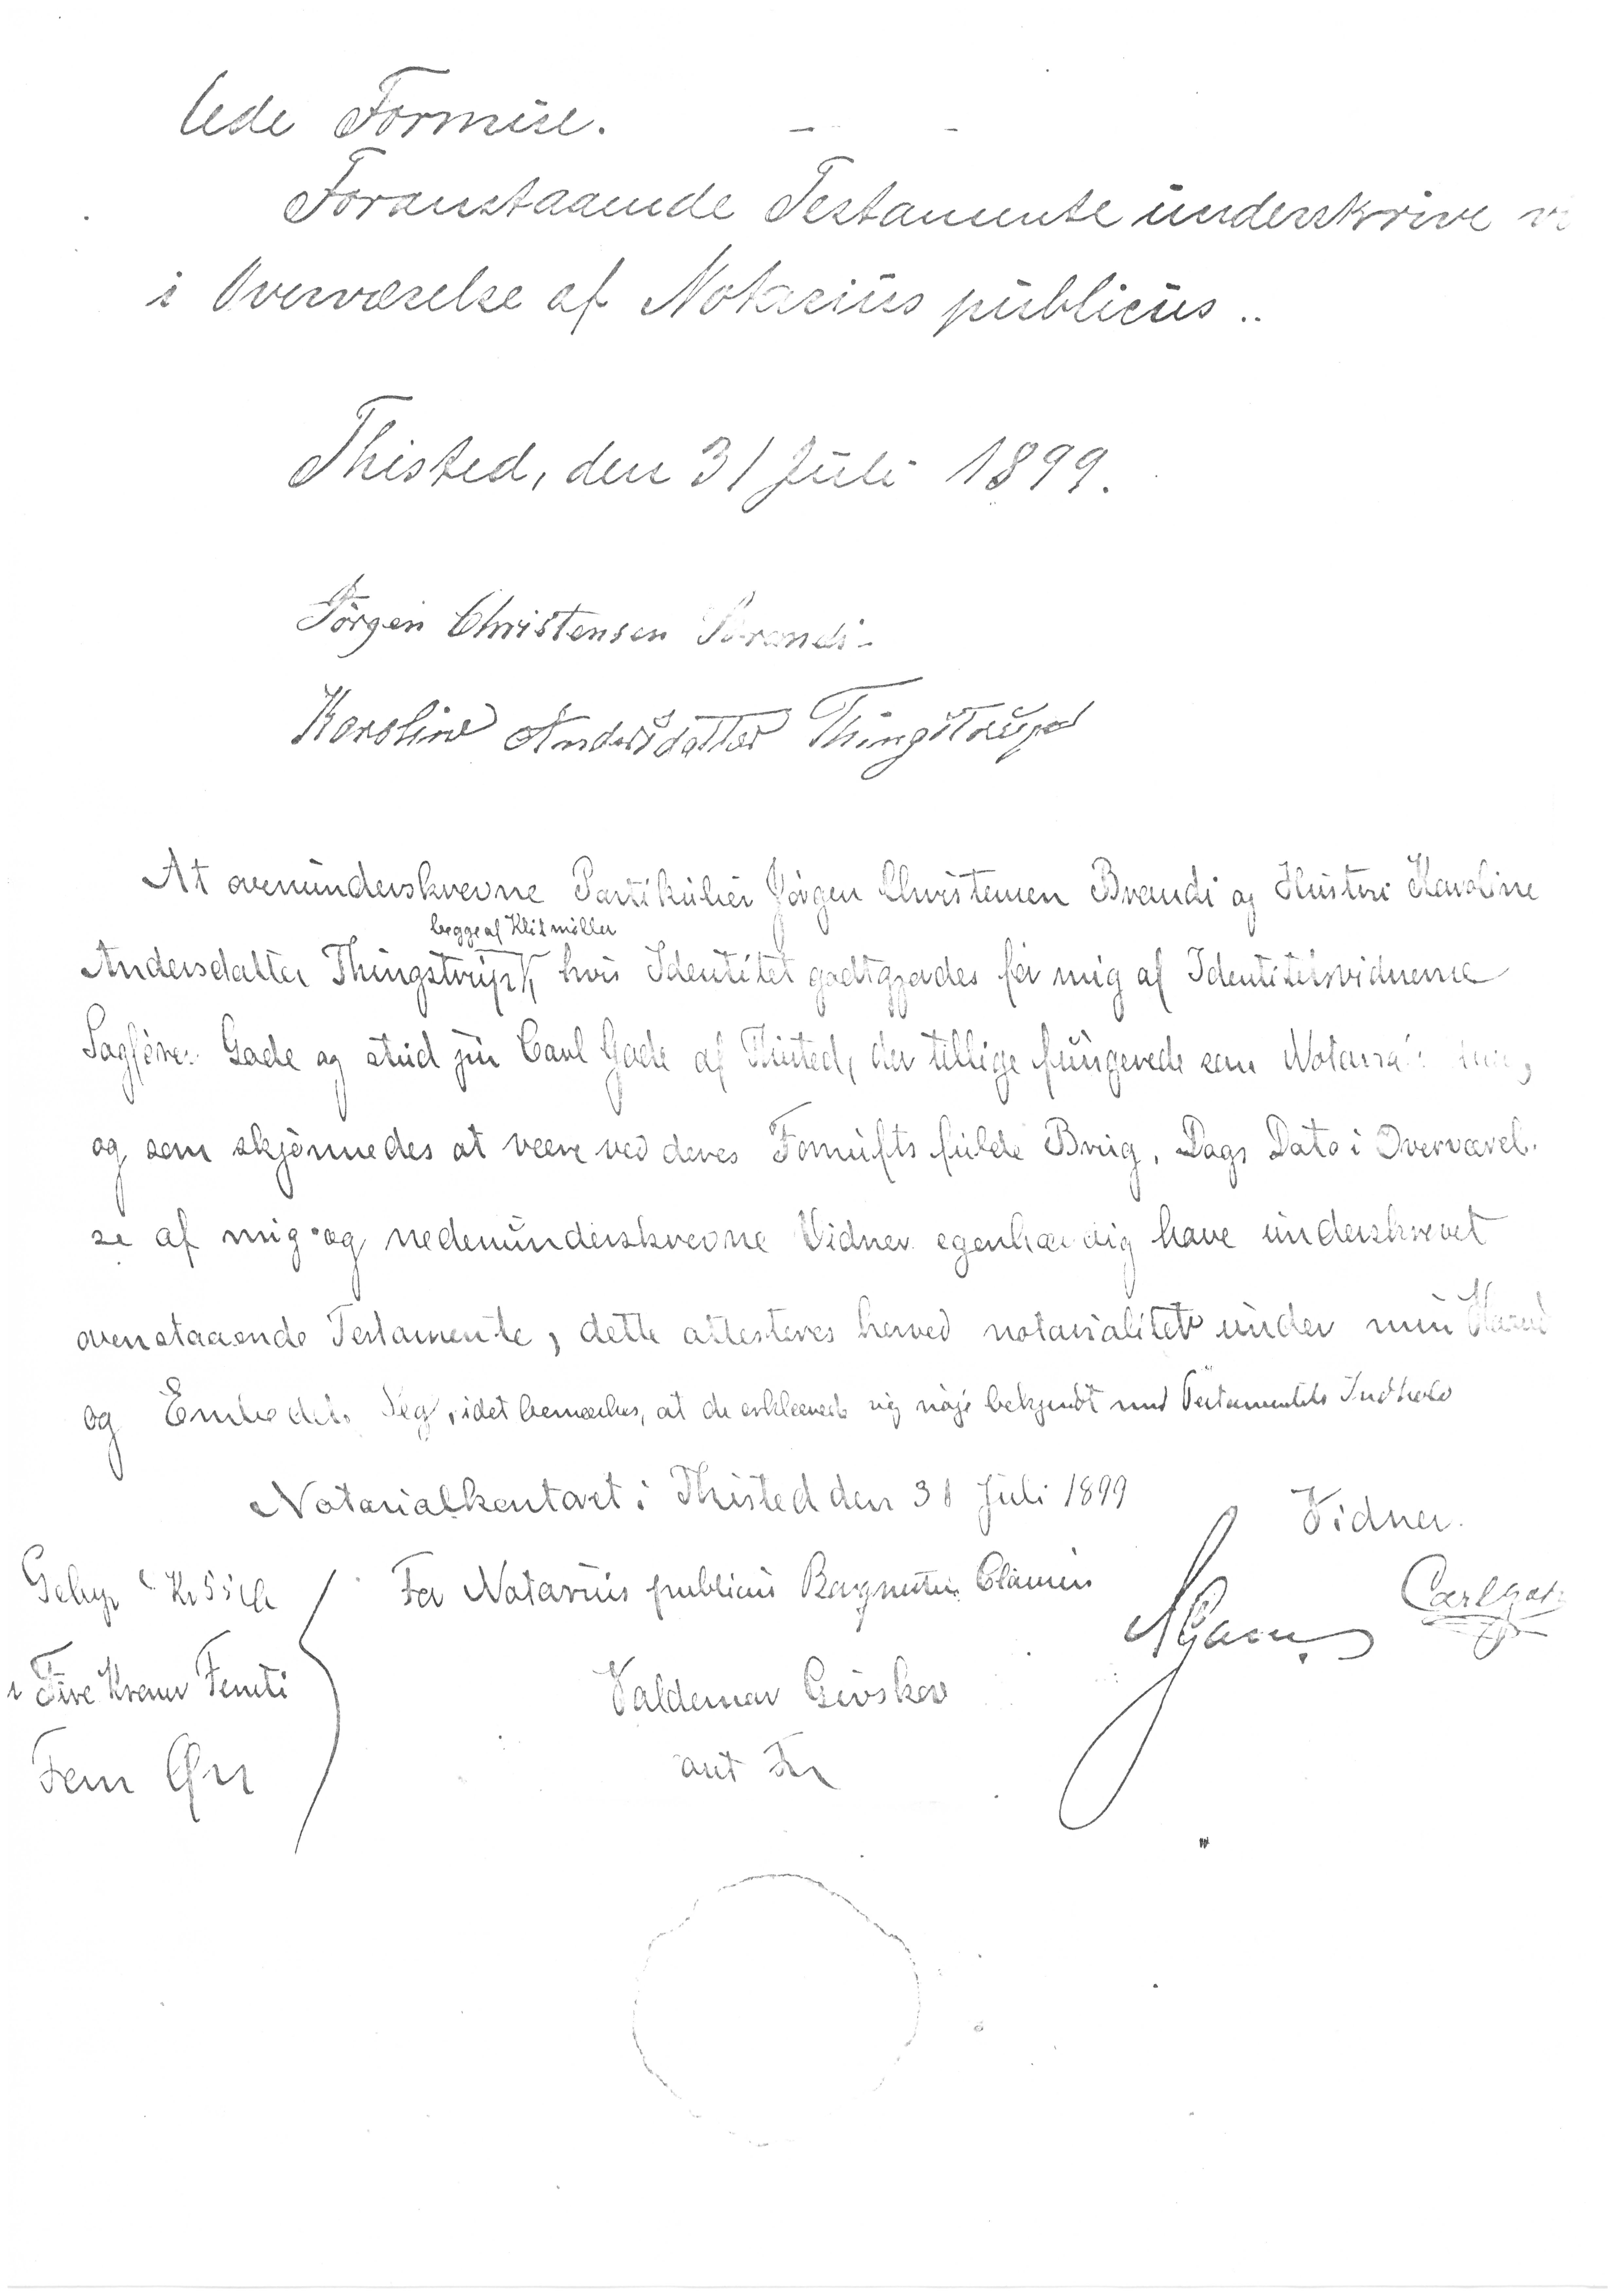 lede Formue.
Foranstaaende Testamente underskrive vi
i Overværelse af Notarius publicus..
Thisted, den 31 Juli 1899.
Jörgen Christensen Brandi.
Karoline Andersdatter Thingstrup
At ovenunderskrevne Partikulier Jörgen Christensen Brandi og Hustru Karoline
begge af Klitmöller
Andersdatter Thingstrup, hvis Identitet godtgjordes for mig af Identitetsvidnerne
Sagförer Gade og stud jur Carl Gade af Thisted, der tillige fungerede som
og som skjönnedes at være ved deres Fornufts fulde Brug, Dags Dato i Overværel-
se af mig og nedenunderskrevne Vidner egenhændig have underskrevet
ovenstaaende Testamente, dette attesteres herved notarialiter under min Haand
og Embedets Segl, idet bemærkes, at de erklærede sig nöje bekjendt med Testamentets Indhold
Notarialkontoret i Thisted den 31 Juli 1899
Vidner.
For Notarius publicus
Valdemar Givskov
Carl Gade
Fire Kroner
Fem Öre